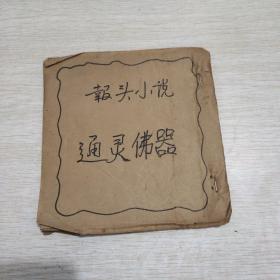 報头小说
通灵佛器